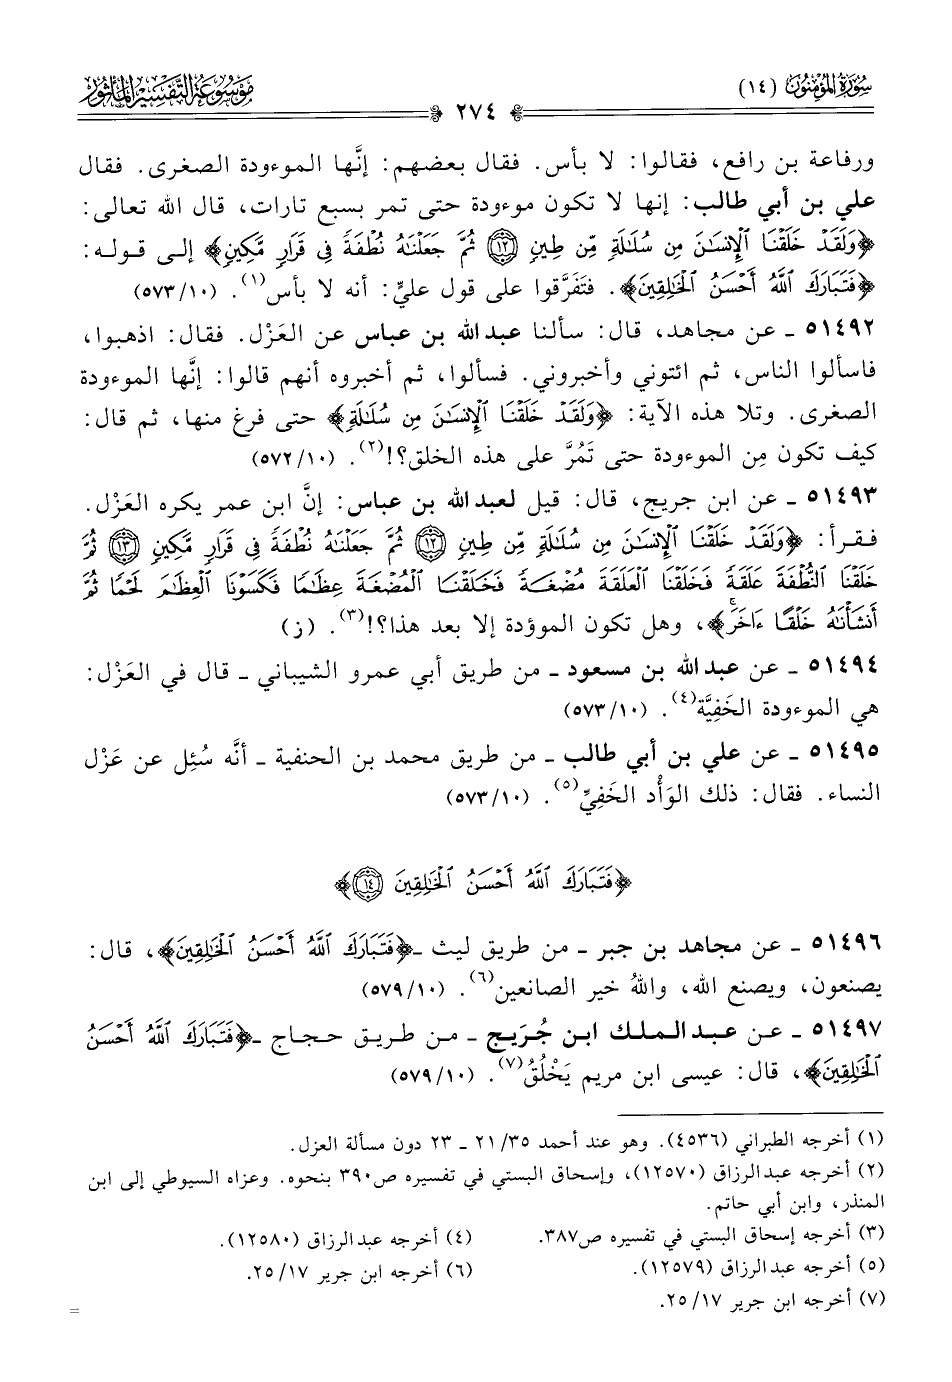 سورة المؤمنون (١٤)
٢٧٤
موسوعة التفسير المأثور
ورفاعة بن رافع، فقالوا: لا بأس. فقال بعضهم: إنَّها الموءودة الصغرى. فقال
علي بن أبي طالب: إنها لا تكون موءودة حتى تمر بسبع تارات، قال الله تعالى:
﴿وَلَقَدْ خَلَقْنَا ٱلْإِنسَٰنَ مِن سُلَٰلَةٍ مِّن طِينٍ ۝١٢ ثُمَّ جَعَلْنَٰهُ نُطْفَةً فِى قَرَارٍ مَّكِينٍ﴾ إلى قوله:
﴿فَتَبَارَكَ ٱللَّهُ أَحْسَنُ ٱلْخَٰلِقِينَ﴾. فتَفَرَّقوا على قول عليٍّ: أنه لا بأس(١). (١٠/ ٥٧٣)
٥١٤٩٢ ـ عن مجاهد، قال: سألنا عبد الله بن عباس عن العَزْل. فقال: اذهبوا،
فاسألوا الناس، ثم ائتوني وأخبروني. فسألوا، ثم أخبروه أنهم قالوا: إنَّها الموءودة
الصغرى. وتلا هذه الآية: ﴿وَلَقَدْ خَلَقْنَا ٱلْإِنسَٰنَ مِن سُلَٰلَةٍ﴾ حتى فرغ منها، ثم قال:
كيف تكون مِن الموءودة حتى تَمُرَّ على هذه الخلق؟!(٢). (١٠/ ٥٧٢)
٥١٤٩٣ ـ عن ابن جريج، قال: قيل لعبد الله بن عباس: إنَّ ابن عمر يكره العَزْل.
فقرأ: ﴿وَلَقَدْ خَلَقْنَا ٱلْإِنسَٰنَ مِن سُلَٰلَةٍ مِّن طِينٍ ۝١٢ ثُمَّ جَعَلْنَٰهُ نُطْفَةً فِى قَرَارٍ مَّكِينٍ ۝١٣ ثُمَّ
خَلَقْنَا ٱلنُّطْفَةَ عَلَقَةً فَخَلَقْنَا ٱلْعَلَقَةَ مُضْغَةً فَخَلَقْنَا ٱلْمُضْغَةَ عِظَٰمًا فَكَسَوْنَا ٱلْعِظَٰمَ لَحْمًا ثُمَّ
أَنشَأْنَٰهُ خَلْقًا ءَاخَرَۚ﴾، وهل تكون الموؤدة إلا بعد هذا؟!(٣). (ز)
٥١٤٩٤ ـ عن عبد الله بن مسعود ـ من طريق أبي عمرو الشيباني ـ قال في العَزْل:
هي الموءودة الخَفِيَّة(٤). (١٠/ ٥٧٣)
٥١٤٩٥ ـ عن علي بن أبي طالب ـ من طريق محمد بن الحنفية ـ أنَّه سُئِل عن عَزْل
النساء. فقال: ذلك الوَأْد الخَفِيِّ(٥). (١٠/ ٥٧٣)
﴿فَتَبَارَكَ ٱللَّهُ أَحْسَنُ ٱلْخَٰلِقِينَ ۝١٤﴾
٥١٤٩٦ ـ عن مجاهد بن جبر ـ من طريق ليث ـ ﴿فَتَبَارَكَ ٱللَّهُ أَحْسَنُ ٱلْخَٰلِقِينَ﴾، قال:
يصنعون، ويصنع الله، واللهُ خير الصانعين(٦). (١٠/ ٥٧٩)
٥١٤٩٧ ـ عن عبد الملك ابن جُرَيج ـ من طريق حجاج ـ ﴿فَتَبَارَكَ ٱللَّهُ أَحْسَنُ
ٱلْخَٰلِقِينَ﴾، قال: عيسى ابن مريم يَخْلُقُ(٧). (١٠/ ٥٧٩)
(١) أخرجه الطبراني (٤٥٣٦). وهو عند أحمد ٣٥/ ٢١ ـ ٢٣ دون مسألة العزل.
(٢) أخرجه عبد الرزاق (١٢٥٧٠)، وإسحاق البستي في تفسيره ص٣٩٠ بنحوه. وعزاه السيوطي إلى ابن
المنذر، وابن أبي حاتم.
(٣) أخرجه إسحاق البستي في تفسيره ص٣٨٧.
(٤) أخرجه عبد الرزاق (١٢٥٨٠).
(٥) أخرجه عبد الرزاق (١٢٥٧٩).
(٦) أخرجه ابن جرير ١٧/ ٢٥.
(٧) أخرجه ابن جرير ١٧/ ٢٥.
=